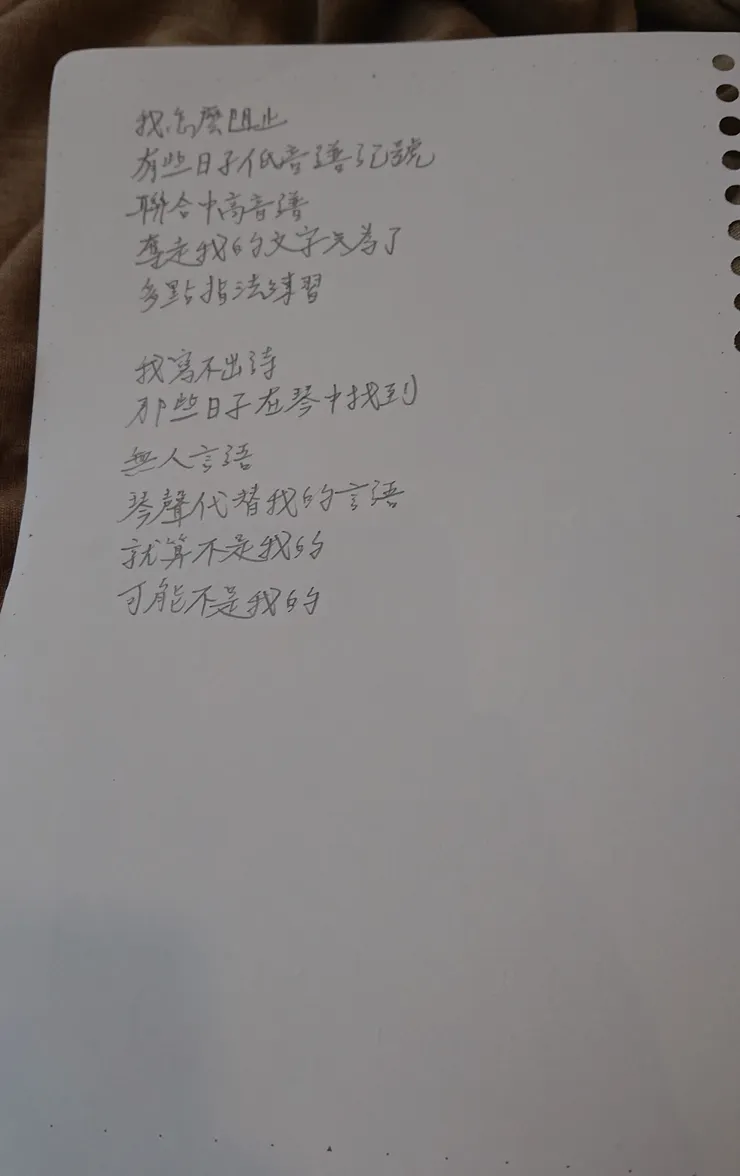 我怎麼阻止
有些日子低音譜記號
聯合中高音譜
奪走我的文字只為了
多點指法練習
我寫不出詩
那些日子在琴中找到
無人言語
琴聲代替我的言語
就算不是我的
可能不是我的